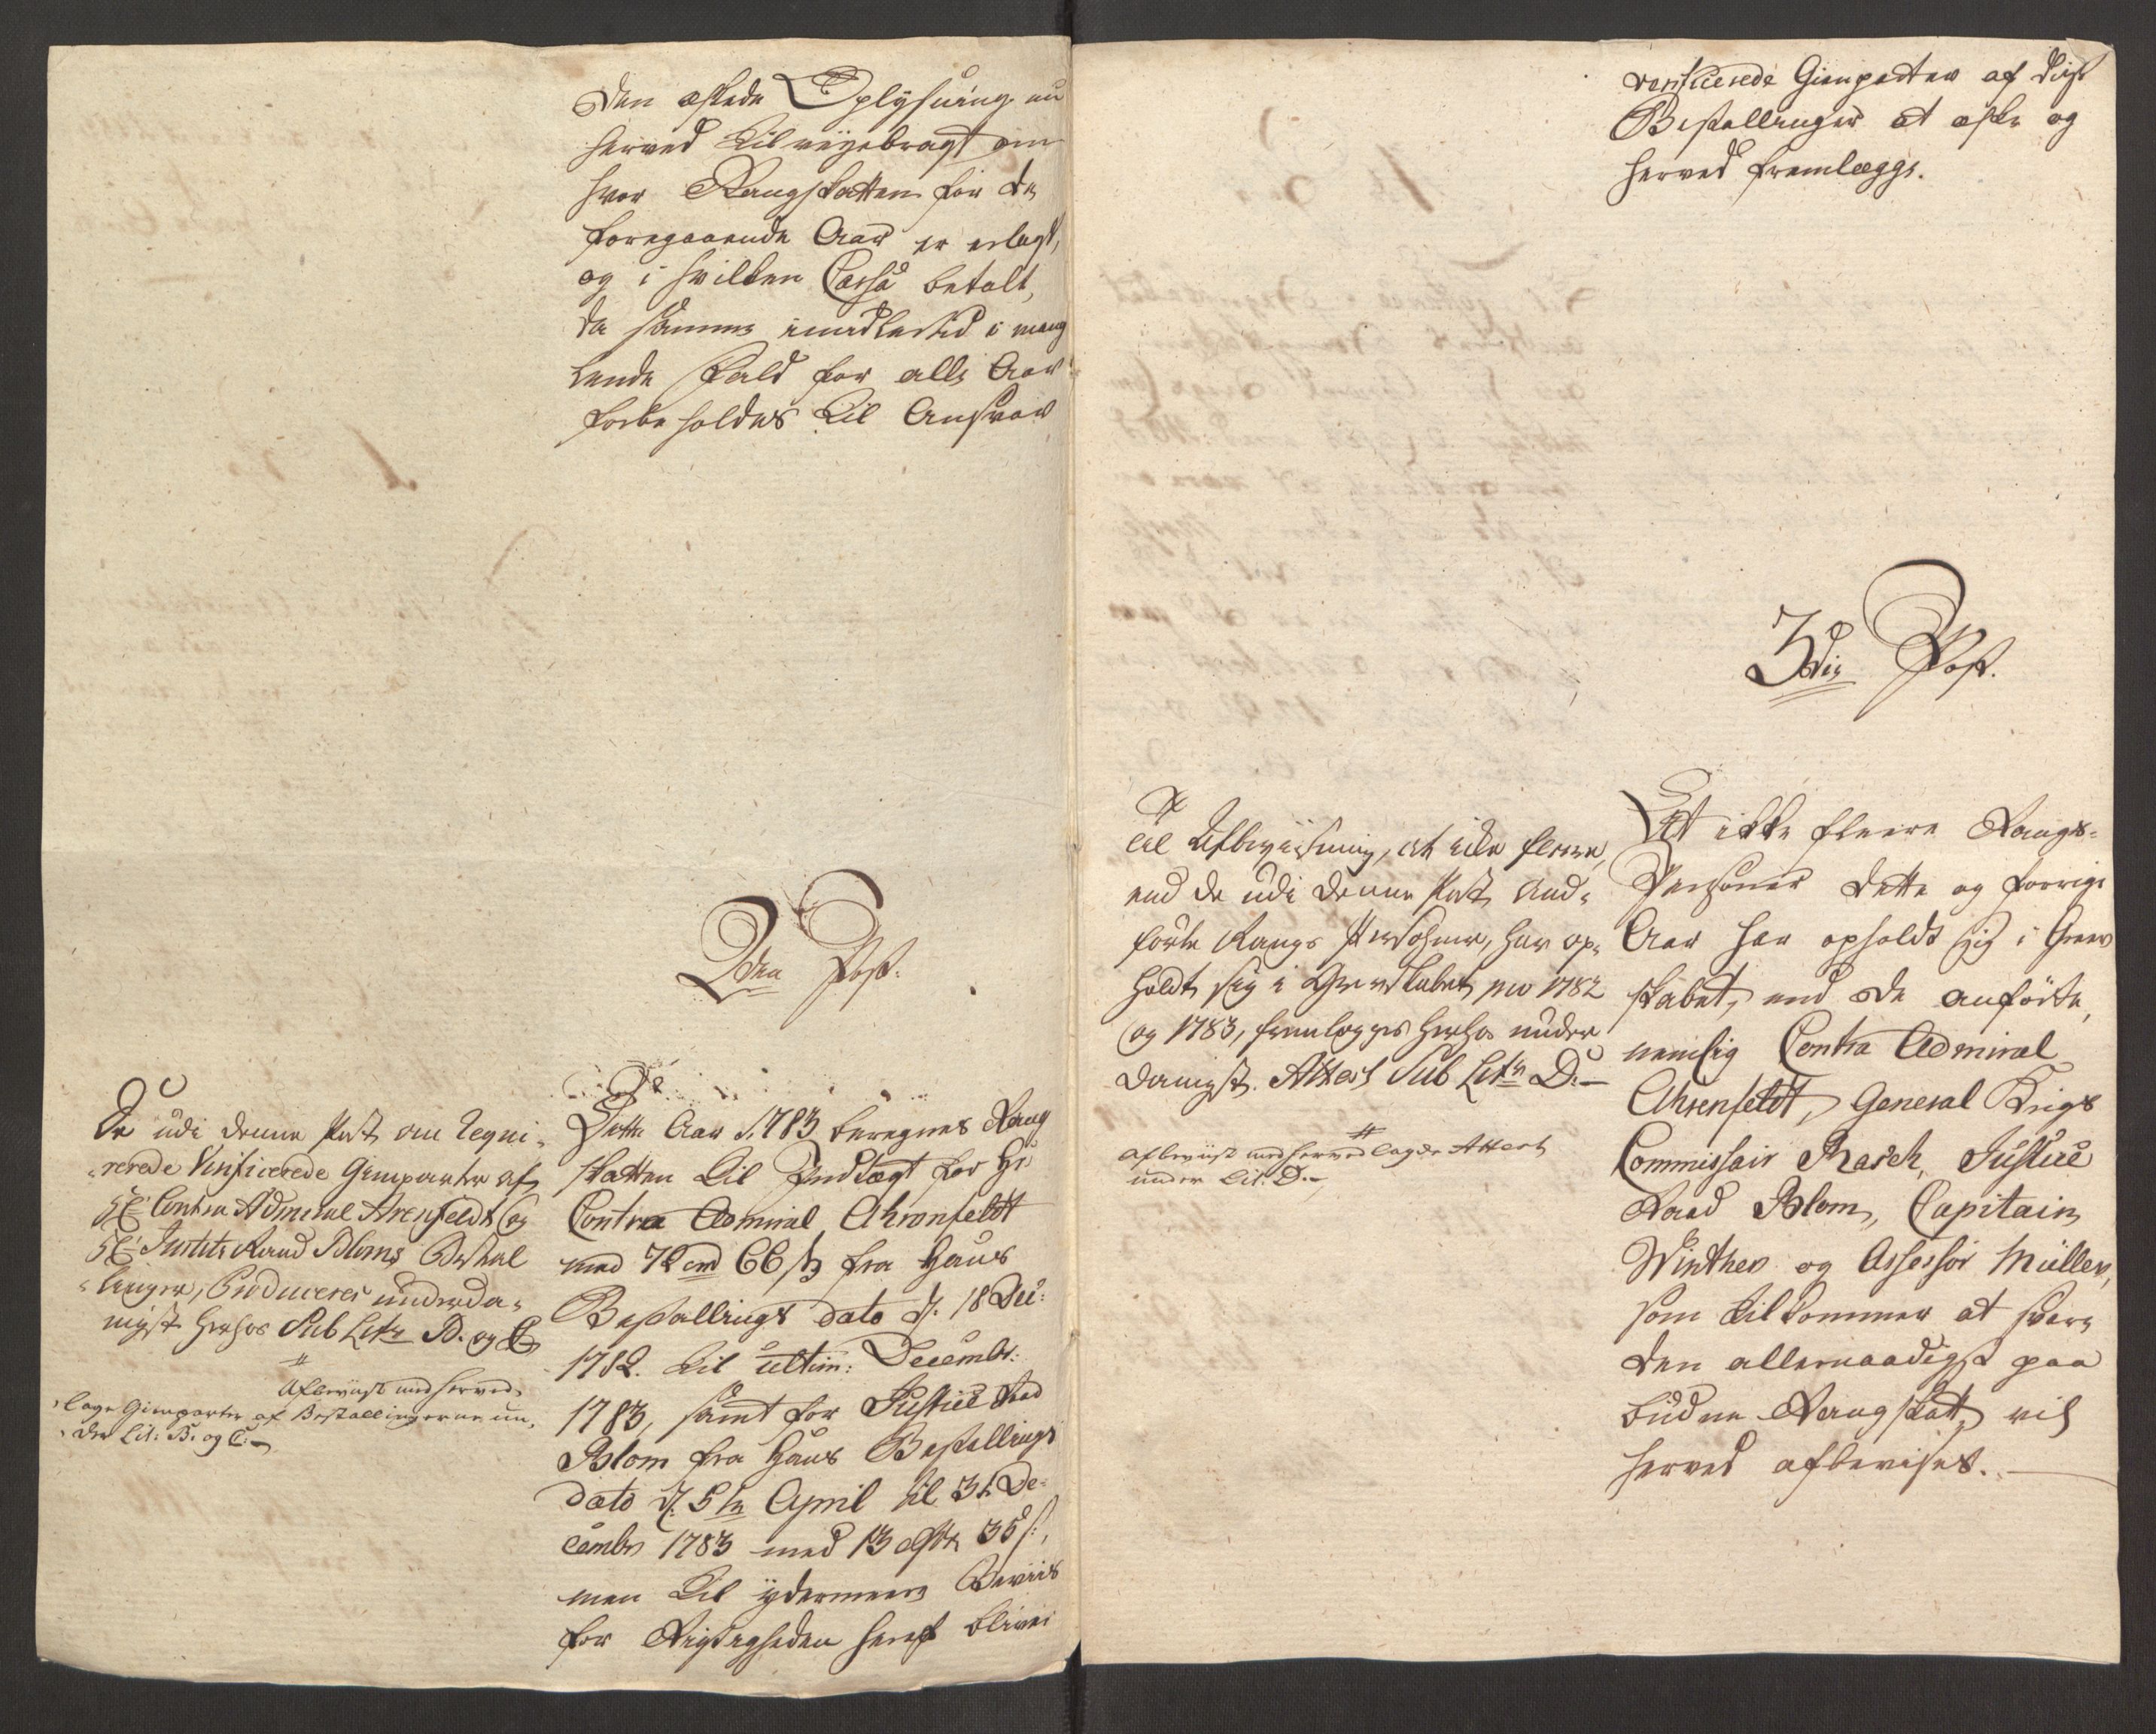 Den æskede Oplysning nu
herved tilveyebragt om
hvor Rangskatten for de
foregaaende Aar er erlagt,
og i hvilken Cassa betalt,
da samme imidlertid i mang
lende fald for alle Aar
forbeholdes til Ansvar
2den Post.
De udi denne Post om reqvi-
rerede Verificerede Gienparter af
Hr Contra Admiral Arenfeldt og
Hr Justits Raad Bloms Bestal
linger, Produceres underda-
nigst herhos Sub Litr B. og C.
#
Afbeviist med herved-
lagde Gienparter af Bestallingerne un-
der Lit: B. og C.
Dette Aar 1783 beregnes Rang
skatten til Indtægt for Hr
Contra Admiral Ahrenfeldt
med 72 rd 66 s fra Hans
Bestallings dato d. 18 Dec:
1782. til ultim: Decembr:
1783, samt for Justice Raad
Blom fra Hans Bestallings
dato d. 5te April til 31 De-
cembr 1783 med 13 Rdr 35 s:,
men til ydermere Beviis
for Rigtigheden heraf bliver
verificerede Gienparter af disse
Bestallinger at æske og
herved fremlægges.
3die Post.
Til Afbeviisning, at ikke fleere,
end de udi denne Post And-
førte Rangs Persohner, har op-
holdt sig i Grevskabet pro 1782
og 1783, fremlægges herhos under
danigst. Attest Sub Litr D.
#
Afbeviist med herved lagde Attest
under Lit: D.
At ikke fleere Rangs-
Personer dette og forrige
Aar har opholdt sig i Grev
skabet, end de anførte,
nemlig Contra Admiral
Ahrenfeldt, General Krigs
Commissair Rasch, Justice
Raad Blom, Capitain
Winther og Assessor Müller,
som tilkommer at svare
den allernaadigst paa
budne Rangskatt, vil
herved afbevises.